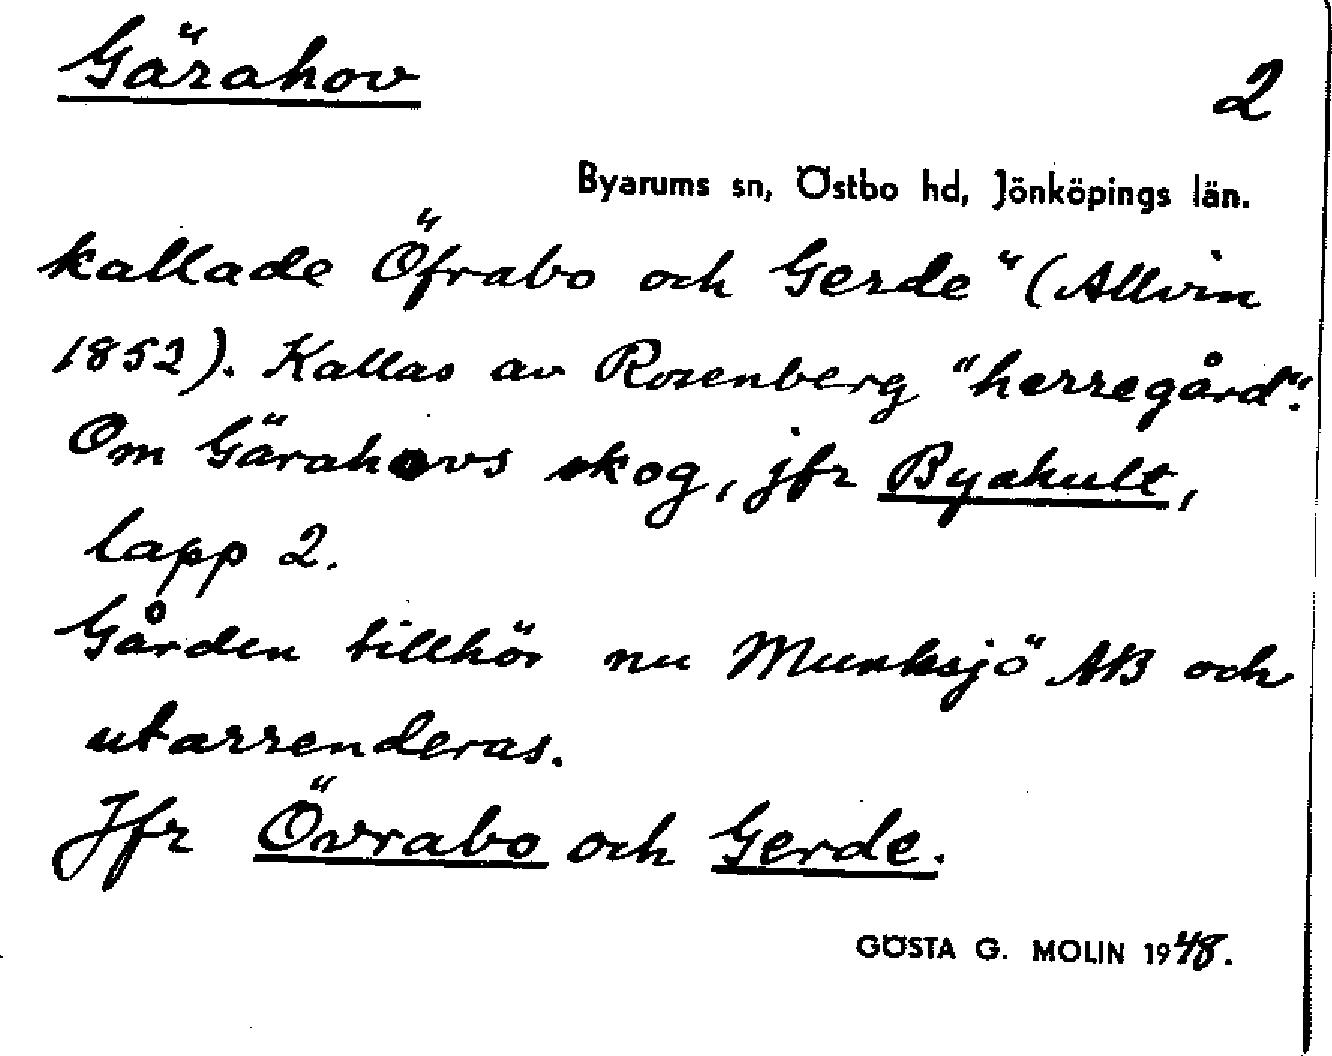 Gärahov
2
Byarums sn, Östbo hd, Jönköpings län.
kallade Öfrabo och Gerde" (Allvin
1852). Kallas av Rosenberg "herregård".
Om Gärahovs skog, jfr Byahult,
lapp 2.
Gården tillhör nu Munksjö AB och
utarrenderas.
Jfr Övrabo och Gerde.
GÖSTA G. MOLIN 1948.